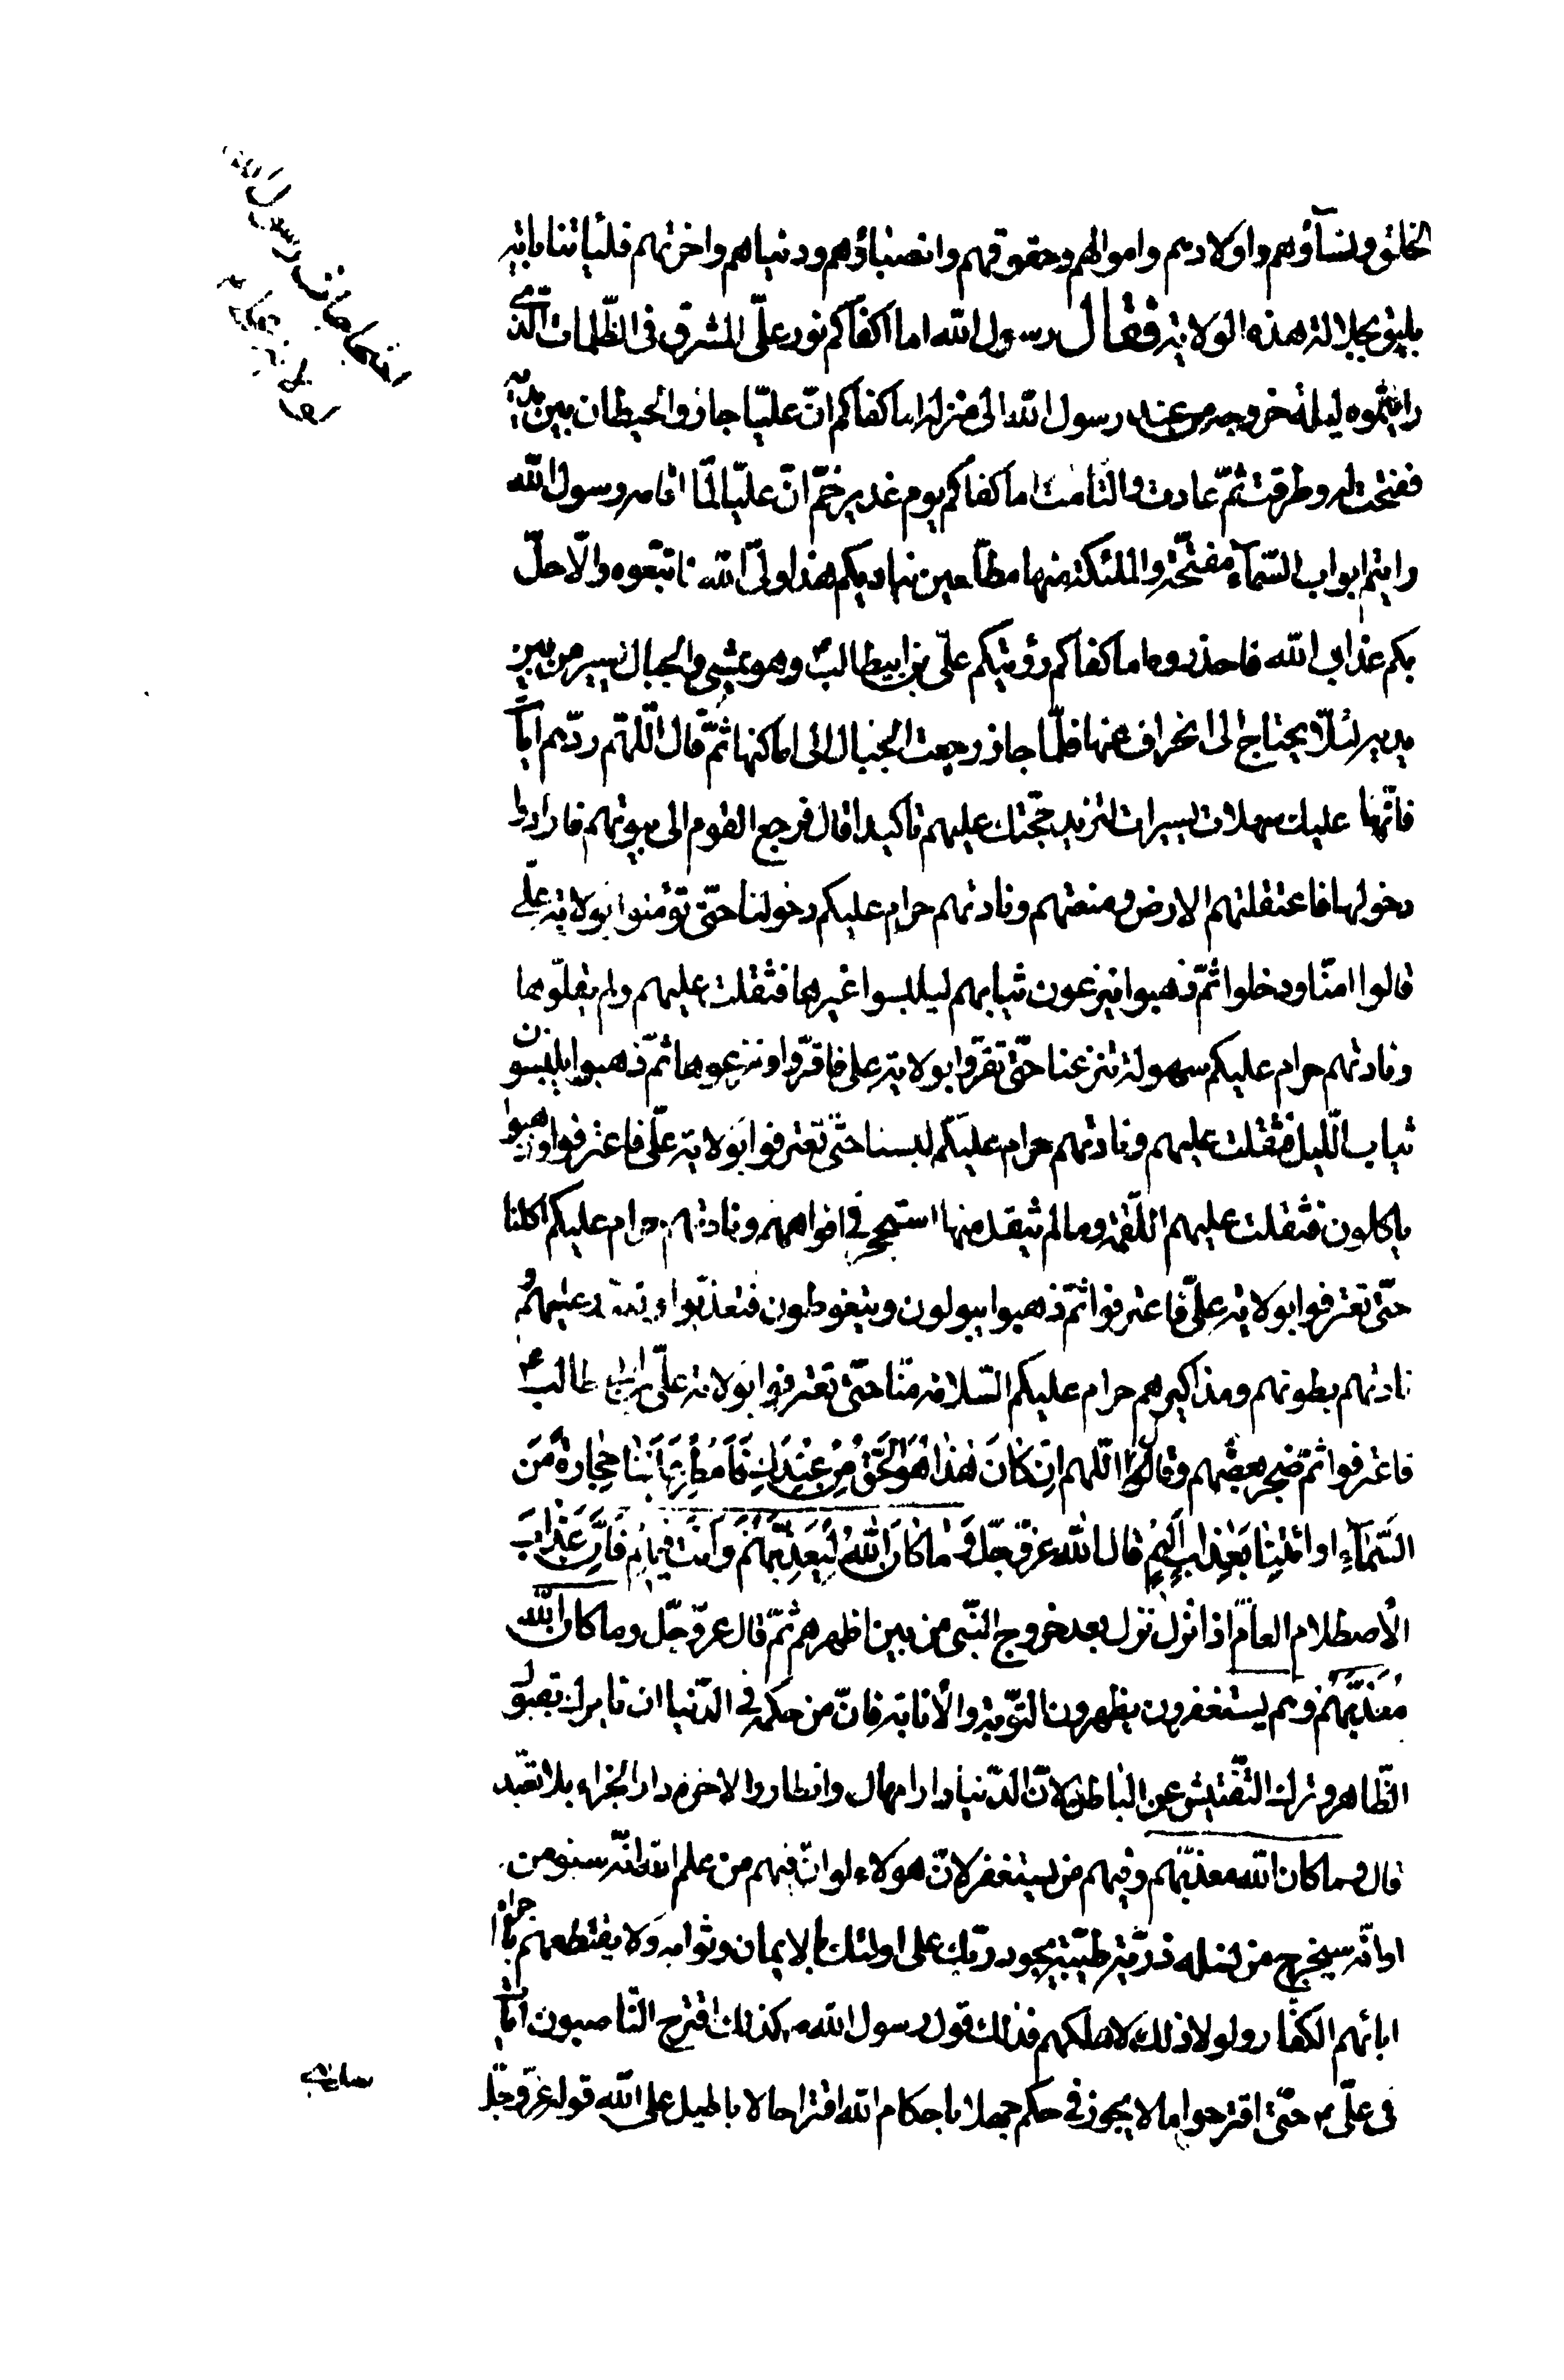 الخلائق ونسآؤهم واولادهم واموالهم وحقوقهم وانصباؤهم ودنياهم واخرتهم فليأتنا باية
يليق بجلالة هذه الولاية فقال رسول الله اما كفاكم نور علىّ المشرق فى الظّلمات الّذى
رايتموه ليلة خروجه من عند رسول الله الى منزله اما كفاكم انّ عليّا جاز والحيطان بين يديه
ففتحت له وطرقت ثمّ عادت والتأمت اما كفاكم يوم غدير خمّ انّ عليّا لمّا اقامه رسول الله
رايتم ابواب السّمآء مفتّحة والملئكة منها مطّلعين تناديكم هذا ولىّ الله فاتبعوه والّا حلّ
بكم عذاب الله فاحذروه اما كفاكم رؤيتكم علىّ بن ابيطالب ع وهو يمشى والجبال تسير من بين
يديه لئلّا يحتاج الى انحراف عنها فلمّا جاز رجعت الجبال الى اماكنها ثمّ قال اللّهمّ زدهم ايات
فانّها عليك سهلات يسيرات لتزيد حجّتك عليهم تاكيدا قال فرجع القوم الى بيوتهم فارادوا
دخولها فاعتقلتهم الارض ومنعتهم ونادتهم حرام عليكم دخولنا حتّى تؤمنوا بولاية علىّ
قالوا امنّا ودخلوا ثمّ ذهبوا ينزعون ثيابهم ليلبسوا غيرها فثقلت عليهم ولم يقلّوها
ونادتهم حرام عليكم سهولة نزعنا حتّى تقرّوا بولاية على فاقرّوا ونزعوها ثمّ ذهبوا يلبسون
ثياب اللّيل فثقلت عليهم ونادتهم حرام عليكم لبسنا حتّى تعترفوا بولاية علىّ فاعترفوا وذهبوا
ياكلون فثقلت عليهم اللّقمة وما لم يثقل منها استحجر فى افواههم ونادتهم حرام عليكم اكلنا
حتّى تعترفوا بولاية علىّ فاعترفوا ثمّ ذهبوا يبولون ويتغوطون فتعذّبوا وتعذّر عليهم و
نادتهم بطونهم ومذاكيرهم حرام عليكم السّلامة منّا حتّى تعترفوا بولاية علىّ بن ابى طالب ع
فاعترفوا ثمّ ضجر بعضهم وقالوا اللّهم اِن كانَ هٰذا هُوَ الحَقَّ مِن عِندِكَ فَاَمطِر عَلَينا حِجارةً مِنَ
السَّمآءِ اوِ ائتِنا بِعَذابٍ اَليمٍ قال الله عزّ وجلّ وَ ما كانَ اللهُ لِيُعَذِّبَهُم وَاَنتَ فيهِم فَاِنَّ عَذابَ
الأصطلام العامّ اذا نزل نزل بعد خروج النّبى من بين اظهرهم ثمّ قال عزّ وجلّ وما كان الله
مُعَذِّبَهُم وهم يستغفرون يظهرون التّوبة والأنابة فانّ من حكمه فى الدّنيا ان يامرك بقبول
الظّاهر وترك التّفتيش عن الباطن لانّ الدّنيا دار امهال وانظار والاخرة دار الجزاء بلا تعبّد
قال وما كان الله معذّبهم وفيهم من يستغفر لانّ هولاء لو انّ فيهم من علم الله انّه سيؤمن
او انّه سيخرج من نسله ذرّية طيّبة يجود ربّك على اولئك بالايمان وثوابه ولا يقتطعهم باخترام
ابائهم الكفّار ولولا ذلك لاهلكهم فذلك قول رسول الله ص كذلك اقترح النّاصبون ايات
فى علىّ ع حتّى اقترحوا ما لا يجوز فى حكم جهلا باحكام الله اقتراحا لاباطيل على الله قوله عزّ وجلّ